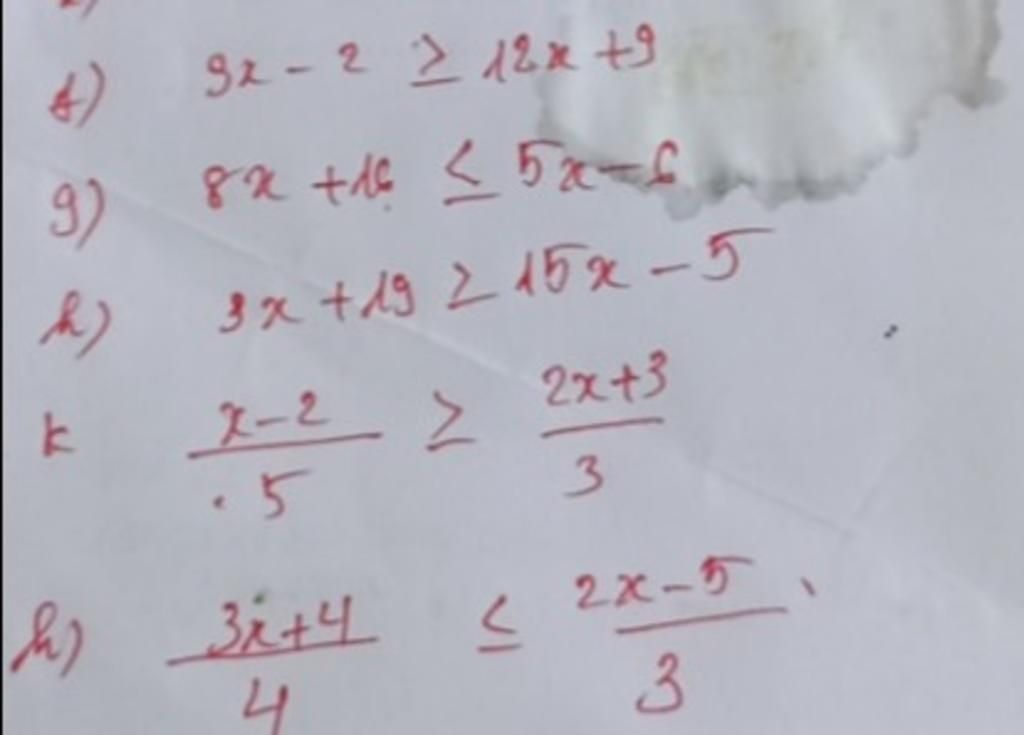 f) 9x - 2 ≥ 12x + 9
g) 8x + 16 ≤ 5x - 6
h) 3x + 19 ≥ 15x - 5
k x-2/5 ≥ 2x+3/3
h) 3x+4/4 ≤ 2x-5/3